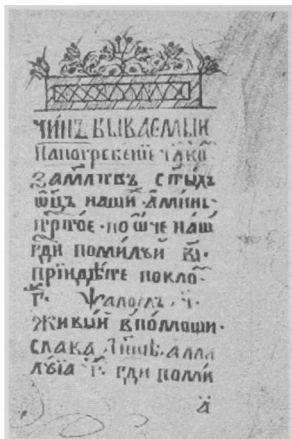 ЧИ́НЪ БЫВАЕМЫЙ
Напогребенїе
ЗАМЛ҃ТВЪ СТ҃ЫХЪ
ѾЦ҃Ъ НАШИ АМИ́НЬ·
ТРТ҃ОЕ · ПО Ѿ́ЧЕ НАШ
ГД҃И ПОМИЛꙊЙ В҃І·
ПРЇИДѢ́ТЕ ПОКЛО
Г҃· ѰАЛО́МЪ · Ч҃·
ЖИВЫ́Й В ПО́МОЩИ·
СЛАВА НН҃Ѣ· АЛЛИ
ЛꙊ́ЇА Г҃· ГД҃И ПОМИ
А҃